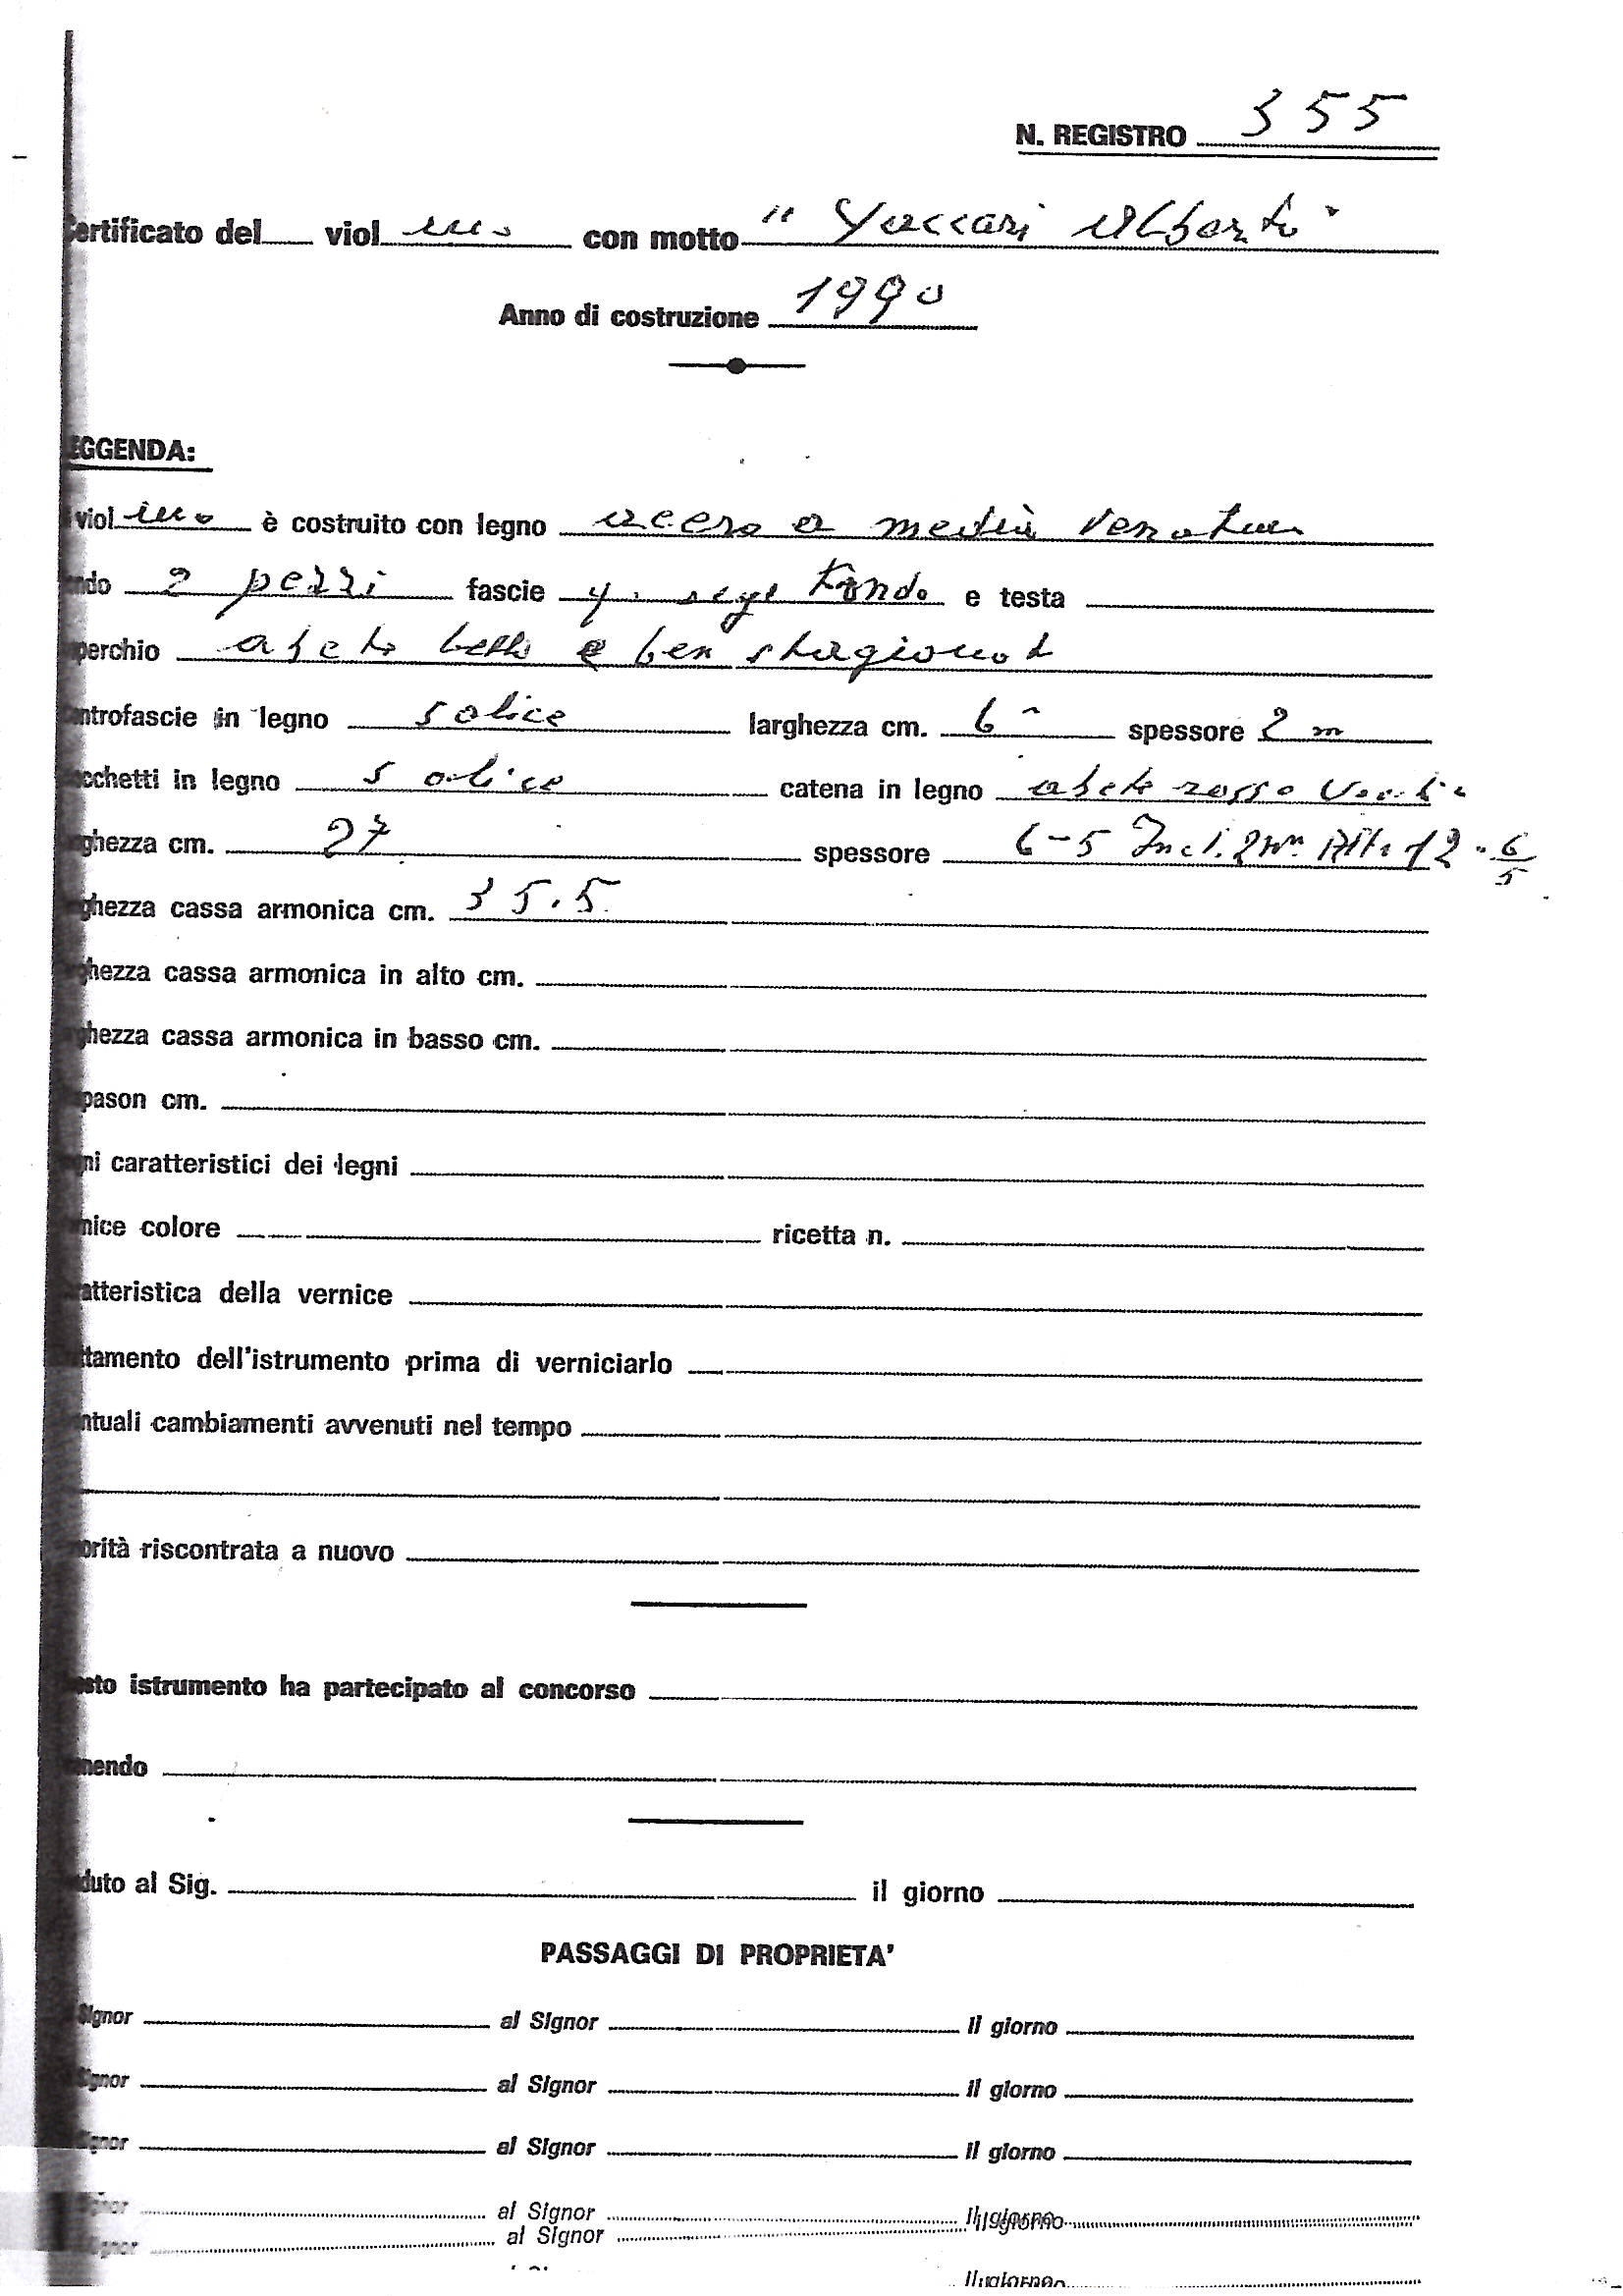 N. REGISTRO 355
Certificato del viol ino con motto " Vaccari Alberto "
Anno di costruzione 1990
EGGENDA:
viol ino è costruito con legno acero a media venatura
ndo 2 pezzi fascie fondo e testa
perchio abete bello e ben stagionat
ntrofascie in legno salice larghezza cm. 6 spessore 2 m
cchetti in legno salice catena in legno abete rosso
ghezza cm. 27 spessore 6-5 Incl. 2 m. Alt. 12 - 6/5
ghezza cassa armonica cm. 35.5
ghezza cassa armonica in alto cm.
ghezza cassa armonica in basso cm.
pason cm.
ni caratteristici dei legni
nice colore ricetta n.
atteristica della vernice
ttamento dell'istrumento prima di verniciarlo
ntuali cambiamenti avvenuti nel tempo
orità riscontrata a nuovo
sto istrumento ha partecipato al concorso
nendo
duto al Sig. il giorno
PASSAGGI DI PROPRIETA'
Signor al Signor il giorno
Signor al Signor il giorno
gnor al Signor il giorno
gnor al Signor il giorno
gnor al Signor il giorno
il giorno